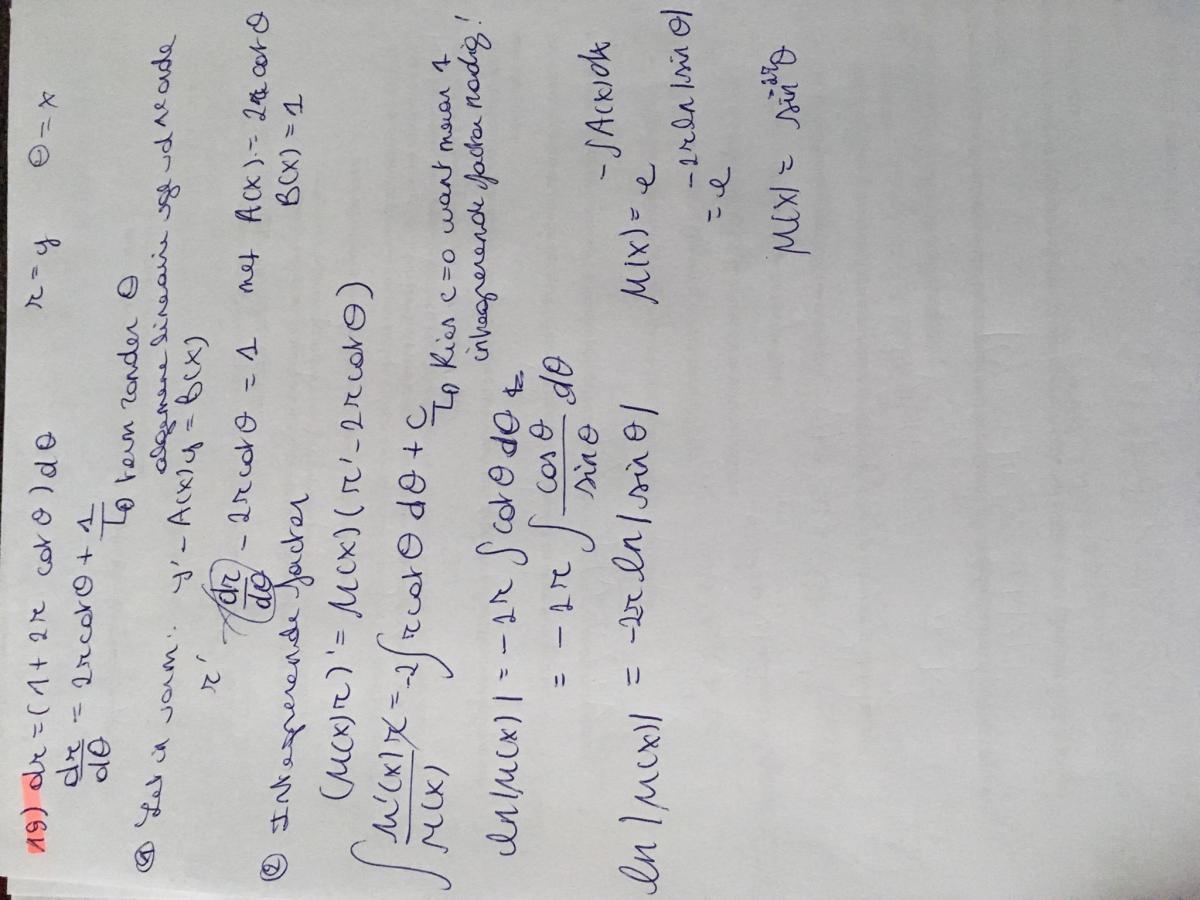 19) dr = (1 + 2r cot θ) dθ r = y θ = x
dr/dθ = 2r cot θ + 1
↳ term zonder θ
① Zet in vorm: algemene lineaire
y' - A(x)y = B(x)
r'
(dr/dθ) - 2r cot θ = 1 met A(x) = 2 cot θ
B(x) = 1
② Integrerende factor
(μ(x)r)' = μ(x)(r' - 2r cot θ)
∫ μ'(x)r/μ(x) = -2∫ r cot θ dθ + C
↳ Kies c=0 want maar 1
integrerende factor nodig!
ln|μ(x)| = -2r ∫ cot θ dθ
= -2r ∫ cos θ/sin θ dθ
ln|μ(x)| = -2r ln|sin θ|
μ(x) = e^(-∫A(x)dx)
= e^(-2r ln|sin θ|)
μ(x) = sin^(-2r) θ